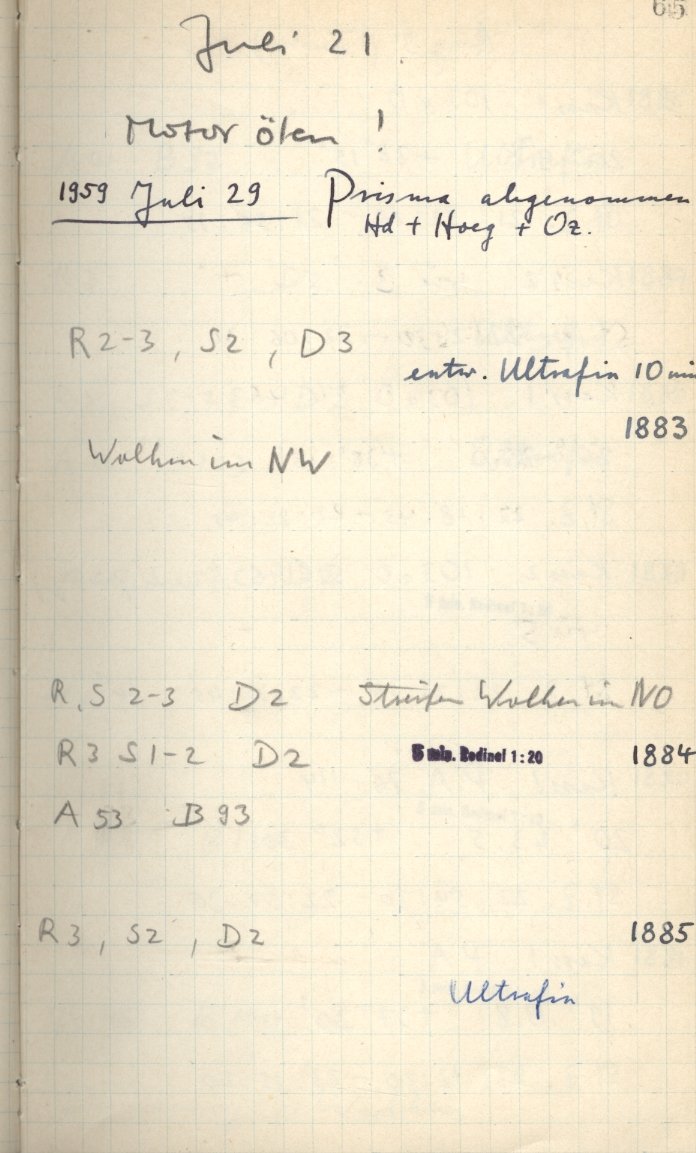 65
Juli 21
Motor ölen !
1959 Juli 29 Prisma abgenommen
Hd + Hoeg + Oz.
R 2-3 , S2 , D 3
entw. Ultrafin 10 min
1883
Wolken im NW
R, S 2-3 D 2 Streifen Wolken im NO
R 3 S 1-2 D 2 5 min. Rodinal 1:20 1884
A 53 B 93
R 3 , S 2 , D 2 1885
Ultrafin